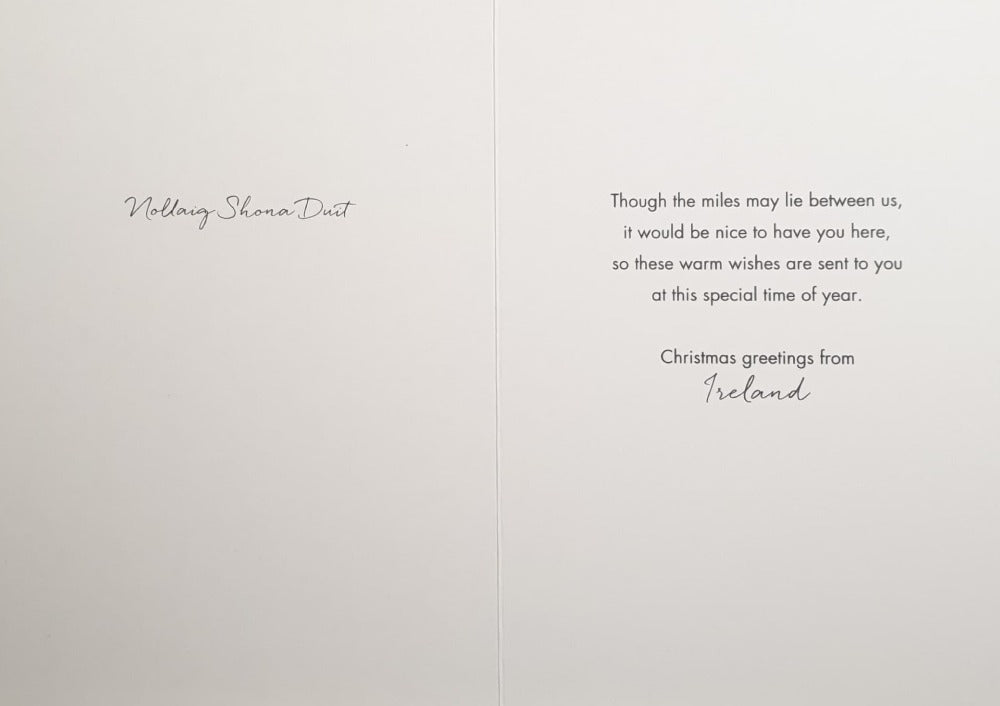 Nollaig Shona Duit
Though the miles may lie between us,
it would be nice to have you here,
so these warm wishes are sent to you
at this special time of year.
Christmas greetings from
Ireland